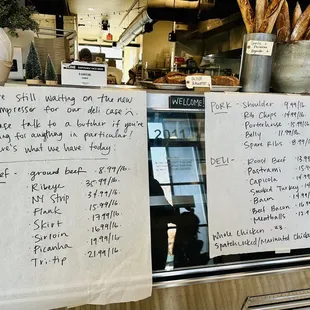 re still waiting on the new
mpressor for our deli case,
ase talk to a butcher if you're
ing for anything in particular!
re's what we have today:
ef - ground beef - 8.99/lb.
Ribeye 35.99/lb.
NY Strip 34.99/lb.
Flank 15.99/lb.
Skirt 17.99/lb.
Sirloin 16.99/lb.
Picanha 19.99/lb.
Tri-tip 21.99/lb.
WELCOME
PORK - Shoulder 9.99/lb
Rib Chops 14.99/lb
Porterhouse 15.99/lb
Belly 11.99/lb.
Spare Ribs 8.99/lb
DELI - Roast Beef 13.9
Pastrami 15.9
Capicola 14.9
Smoked Turkey
Bacon 14.99
Beef Bacon
Meatballs
Whole Chicken
Spatchcocked/Marinated Chick